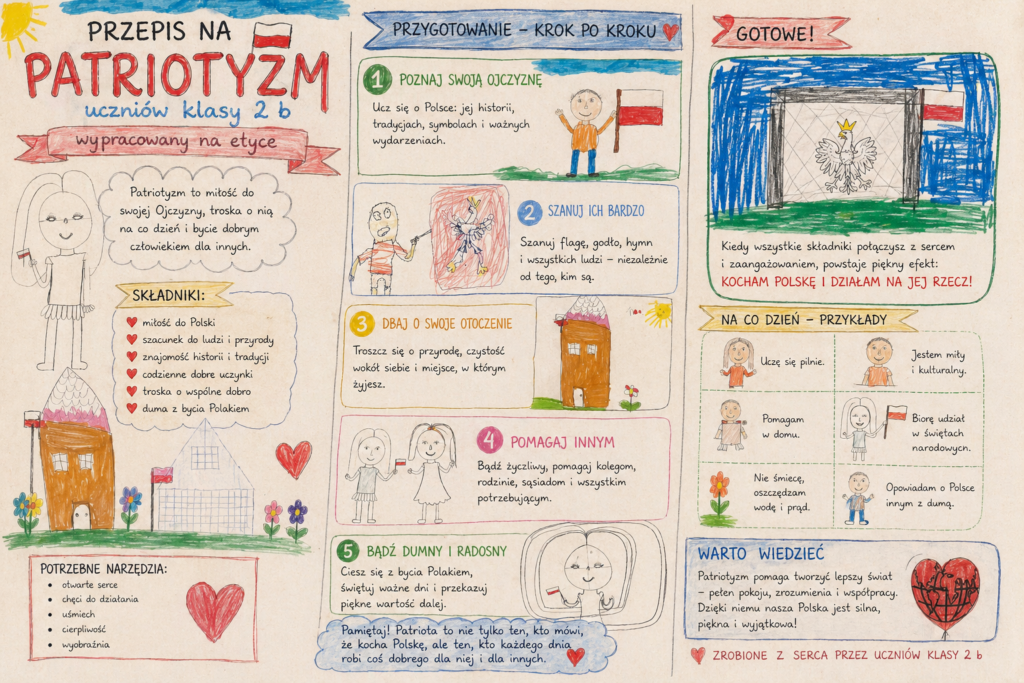 PRZEPIS NA
PATRIOTYZM
uczniów klasy 2 b
wypracowany na etyce
Patriotyzm to miłość do
swojej Ojczyzny, troska o nią
na co dzień i bycie dobrym
człowiekiem dla innych.
SKŁADNIKI:
miłość do Polski
szacunek do ludzi i przyrody
znajomość historii i tradycji
codzienne dobre uczynki
troska o wspólne dobro
duma z bycia Polakiem
POTRZEBNE NARZĘDZIA:
• otwarte serce
• chęci do działania
• uśmiech
• cierpliwość
• wyobraźnia
PRZYGOTOWANIE – KROK PO KROKU
1 POZNAJ SWOJĄ OJCZYZNĘ
Ucz się o Polsce: jej historii,
tradycjach, symbolach i ważnych
wydarzeniach.
2 SZANUJ ICH BARDZO
Szanuj flagę, godło, hymn
i wszystkich ludzi – niezależnie
od tego, kim są.
3 DBAJ O SWOJE OTOCZENIE
Troszcz się o przyrodę, czystość
wokół siebie i miejsce, w którym
żyjesz.
4 POMAGAJ INNYM
Bądź życzliwy, pomagaj kolegom,
rodzinie, sąsiadom i wszystkim
potrzebującym.
5 BĄDŹ DUMNY I RADOSNY
Ciesz się z bycia Polakiem,
świętuj ważne dni i przekazuj
piękne wartość dalej.
Pamiętaj! Patriota to nie tylko ten, kto mówi,
że kocha Polskę, ale ten, kto każdego dnia
robi coś dobrego dla niej i dla innych.
GOTOWE!
Kiedy wszystkie składniki połączysz z sercem
i zaangażowaniem, powstaje piękny efekt:
KOCHAM POLSKĘ I DZIAŁAM NA JEJ RZECZ!
NA CO DZIEŃ – PRZYKŁADY
Uczę się pilnie.
Jestem miły
i kulturalny.
Pomagam
w domu.
Biorę udział
w świętach
narodowych.
Nie śmiecę,
oszczędzam
wodę i prąd.
Opowiadam o Polsce
innym z dumą.
WARTO WIEDZIEĆ
Patriotyzm pomaga tworzyć lepszy świat
– pełen pokoju, zrozumienia i współpracy.
Dzięki niemu nasza Polska jest silna,
piękna i wyjątkowa!
ZROBIONE Z SERCA PRZEZ UCZNIÓW KLASY 2 b